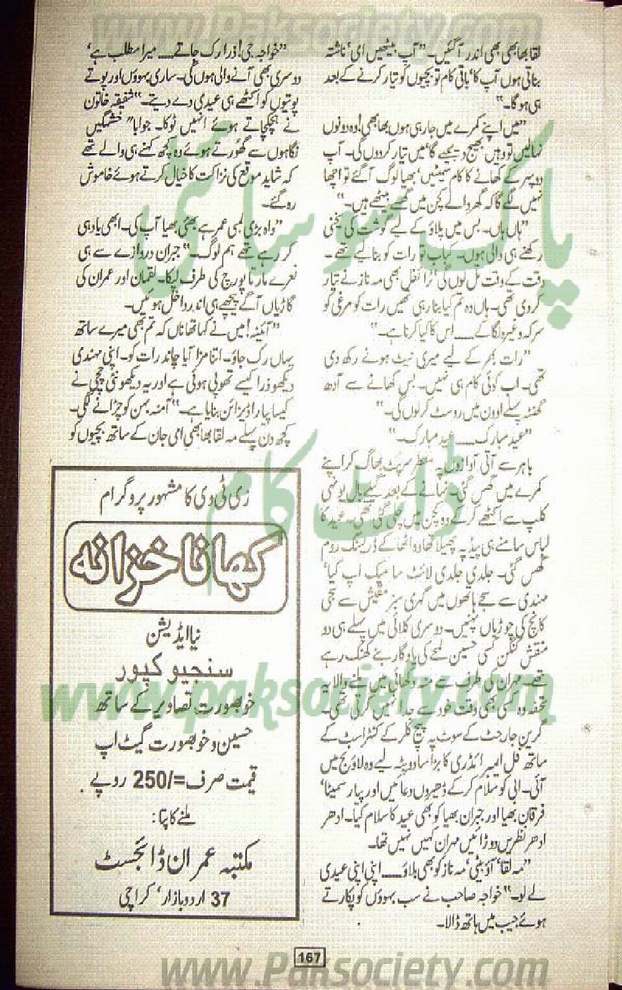 www.Paksociety.com
لقا بھابھی بھی اندر آ گئیں۔ "آپ بیٹھیں امی' ناشتہ
بناتی ہوں آپ کا' باقی کام تو بچیوں کو تیار کرنے کے بعد
ہی ہو گا۔"
"میں اپنے کمرے میں جا رہی ہوں بھابھی! وہ دونوں
نہالیں تو وہیں بھیج دیجیے گا' میں تیار کر دوں گی۔ آپ
دوپہر کے کھانے کا کام سمیٹیں' بھیا لوگ آ گئے تو اچھا
نہیں لگے گا کہ گھر والے کچن میں گھسے بیٹھے ہیں۔"
"ہاں ہاں۔ بس میں پلاؤ کے لیے گوشت کی یخنی
رکھنے ہی والی ہوں۔ کباب تو رات کو بنا لیے تھے۔
وقت کے وقت تل لوں گی' ٹرائفل بھی مہ ناز نے تیار
کر دی تھی۔ ہاں وہ تم کیا بنا رہی تھیں رات کو مرغی کو
سرکہ وغیرہ لگا کے...... اس کا کیا کرنا ہے۔"
"رات بھر کے لیے میری نیٹ ہونے رکھ دی
تھی۔ اب کوئی کام ہی نہیں۔ بس کھانے سے آدھ
گھنٹہ پہلے اوون میں روسٹ کر لوں گی۔"
"عید مبارک...... عید مبارک۔"
باہر سے آتی آوازوں پہ سرپٹ بھاگ کر اپنے
کمرے میں گھس گئی۔ نہانے کے بعد گیلے بال یونہی
کلپ سے اکٹھے کر کے وہ کچن میں چلی گئی تھی۔ عید کا
لباس سامنے ہی بیڈ پہ پھیلا تھا وہ اٹھا کے ڈریسنگ روم
گھس گئی۔ جلدی جلدی لائٹ سا میک اپ کیا'
مہندی سے سجے ہاتھوں میں گہری سبز مقیش سے سجی
کانچ کی چوڑیاں پہنیں۔ دوسری کلائی میں پہلے ہی دو
منقش کنگن کسی حسین لمحے کی یادگار بنے کھنک رہے
تھے۔ جبران کی طرف سے منہ دکھائی میں ملنے والا یہ
تحفہ وہ کسی بھی وقت خود سے جدا نہیں کرتی تھی۔
گرین جارجٹ کے سوٹ پہ پیچ کلر کے کنٹراسٹ کے
ساتھ فل ایمبرائڈری کا بڑا سا دوپٹہ لیے وہ لاؤنج میں
آئی۔ ابی کو سلام کر کے ڈھیروں دعائیں اور پیار سمیٹا'
فرقان بھیا اور جبران بھیا کو بھی عید کا سلام کیا۔ ادھر
ادھر نظریں دوڑائیں مہران کہیں نہیں تھا۔
"مہ لقا' آؤ بیٹی' مہ ناز کو بھی بلاؤ...... اپنی اپنی عیدی
لے لو۔" خواجہ صاحب نے سب بہوؤں کو پکارتے
ہوئے جیب میں ہاتھ ڈالا۔
"خواجہ جی! ذرا رک جاتے...... میرا مطلب ہے'
دوسری بھی آنے والی ہوں گی۔ ساری بہوؤں اور پوتے
پوتیوں کو اکٹھے ہی عیدی دے دیتے۔" شفیقہ خاتون
نے ہچکچاتے ہوئے انہیں ٹوکا۔ جوابا" خشمگیں
نگاہوں سے گھورتے ہوئے وہ کچھ کہنے ہی والے تھے
کہ شاید موقع کی نزاکت کا خیال کرتے ہوئے خاموش
رہ گئے۔
"واہ بڑی لمبی عمر ہے بھئی بھیا آپ کی۔ ابھی یاد ہی
کر رہے تھے ہم لوگ۔" جبران دروازے سے ہی
نعرے مارتا پورچ کی طرف لپکا۔ لقمان اور عمران کی
گاڑیاں آگے پیچھے ہی اندر داخل ہوئیں۔
"آئینہ! میں نے کہا تھا ناں کہ تم بھی میرے ساتھ
یہاں رک جاؤ۔ اتنا مزا آیا چاند رات کو۔ اپنی مہندی
دیکھو ذرا کیسے تھوپی ہوئی ہے اور یہ دیکھو نئی چچی نے
کیسا پیارا ڈیزائن بنایا ہے۔" آمنہ بہن کو چڑانے لگی۔
کچھ دن پہلے مہ لقا بھابھی امی جان کے ساتھ بچیوں کو
زی ٹی وی کا مشہور پروگرام
کھانا خزانہ
نیا ایڈیشن
سنجیو کپور
خوبصورت تصاویر کے ساتھ
حسین و خوبصورت گیٹ اپ
قیمت صرف =/250 روپے
ملنے کا پتا:
مکتبہ عمران ڈائجسٹ
37 اردو بازار' کراچی
پاک سوسائٹی
ڈاٹ کام
www.paksociety.com
167
www.Paksociety.com